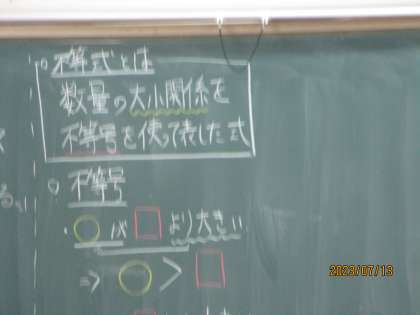 ○不等式とは
数量の大小関係を
不等号を使って表した式
○不等号
・○が□より大きい
⇒ ○>□
2023/07/13